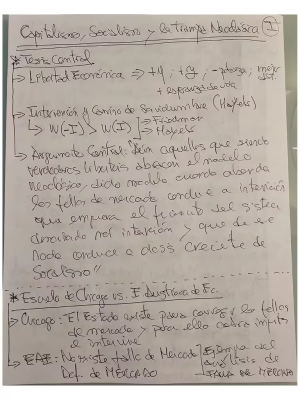 Capitalismo, Socialismo y la trampa Neoclásica ①
* Tesis Central
↳ Libertad Económica ⇒ +y, +y, -pobreza, mejor dist.
+ esperanza de vida
↳ Intervención y Camino de Servidumbre (Hayek)
↳ W(-I) > W(I) → Friedman
→ Hayek
↳ Argumento Central: "Son aquellos que siendo
verdaderos liberales abrazan el modelo
Neoclásico, dicho modelo cuando aborda
los fallos de mercado conduce a intervención
que empeora el resultado del sistema
derivado por intervención y que de ese
modo conduce a dosis creciente de
Socialismo"
* Escuela de Chicago vs. I Austriaca de Ec.
↳ Chicago: El Estado existe para corregir los fallos
de mercado y para ello cobra impuestos
e interviene
↳ EAE: No existe fallo de Mercado
Def. de MERCADO
análisis de
FALLO DE MERCADO